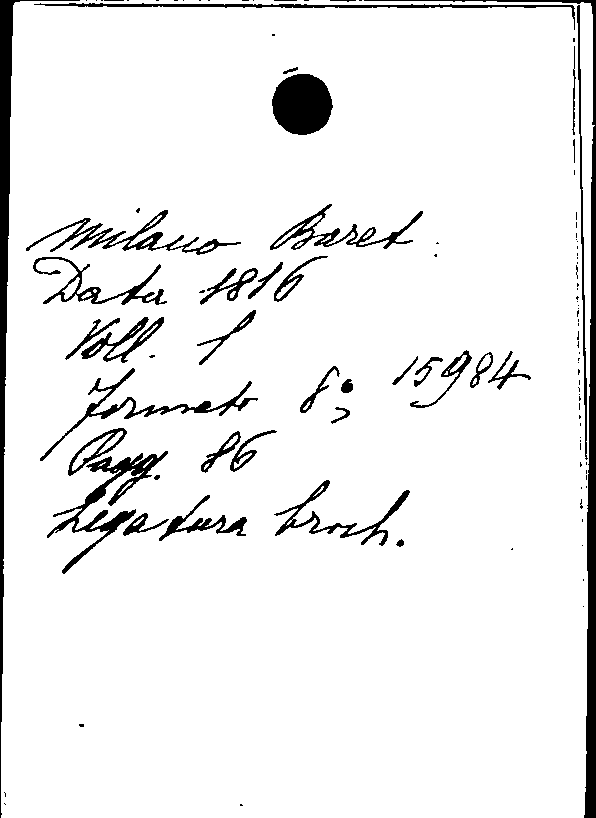 Milano Baret
Data 1816
Voll. 1
formato 8°, 15984
Pagg. 86
Legatura broch.